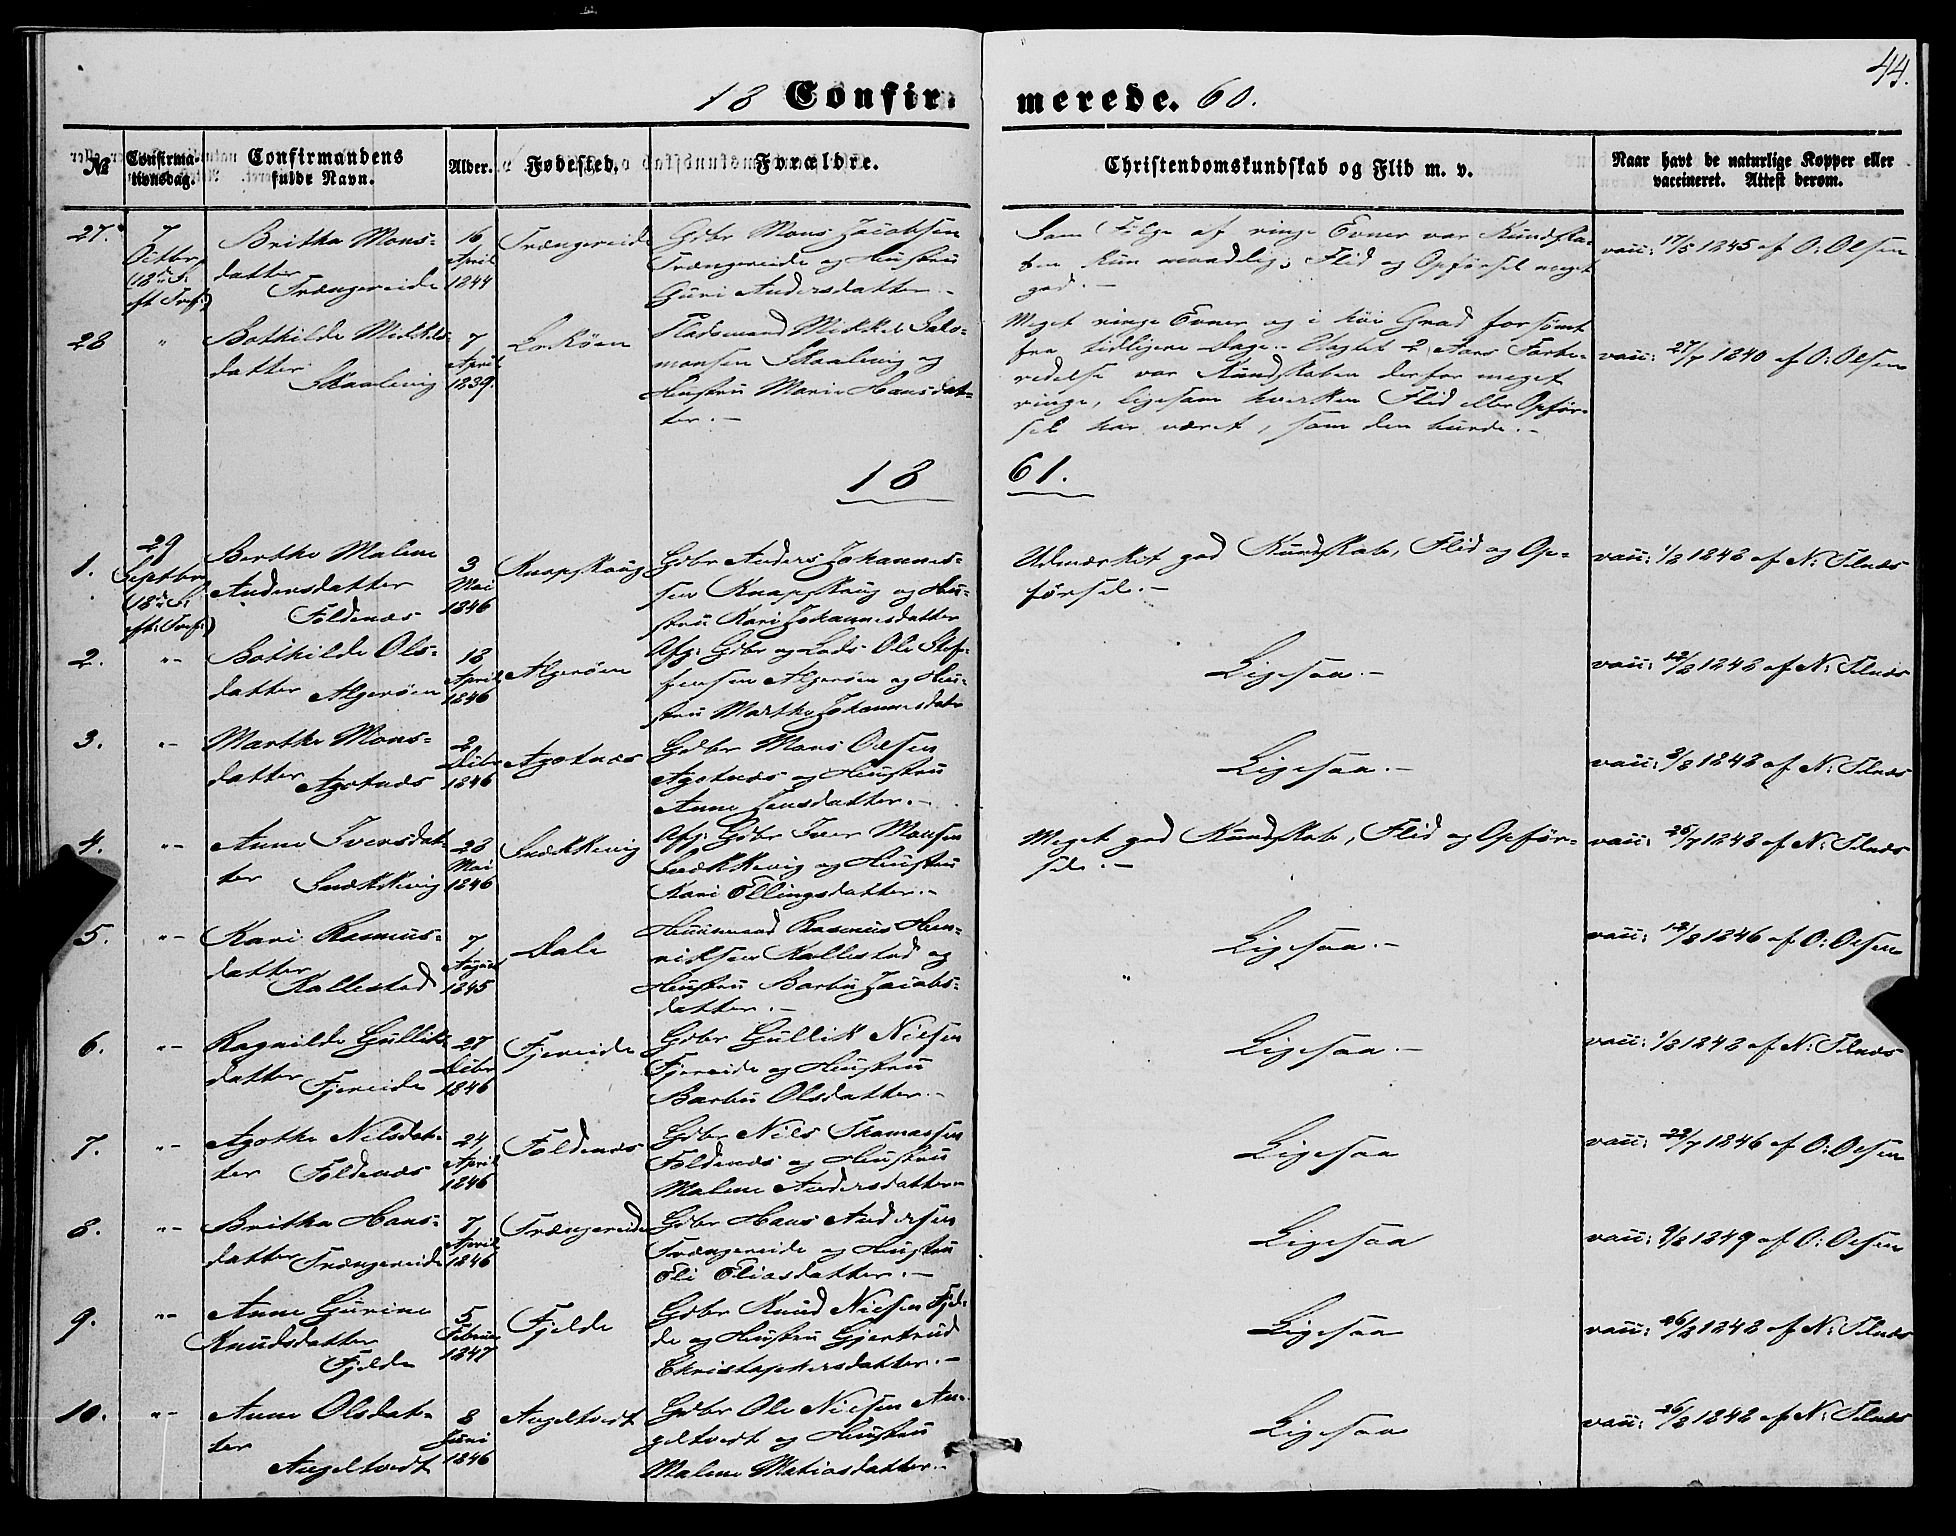 44.
18 Confir- merede. 60.
No
Confirma-
tionsdag.
Confirmandens
fulde Navn.
Alder.
Fødested.
Forældre.
Christendomskundskab og Flid m. v.
Naar havt de naturlige Kopper eller
vaccineret. Attest derom.
27.
7
Octbr
(18de S.
eft. Tref:)
Britha Mons-
datter
Trængereide
16
April
1844
Trængereide
Gdbr Mons Jacobsen
Trængereide og Hustru
Guri Andersdatter.-
Som Følge af ringe Evner var Kundska-
ben kun maadelig; Flid og Opførsel meget
god.-
vacc: 17/5 1845 af O: Olsen
28
"
Bothilde Mikkels-
datter
Skaalevig
7
April
1839.
Pladsmand Mikkel Salo-
monsen Skaalevig og
Hustru Marie Hansdat-
ter.-
Meget ringe Evner og i høi Grad forsømt
fra tidligere Dage. Uagtet 2 Aars Forbe-
redelse var Kundskaben derfor meget
ringe, ligesom hverken Flid eller Opfør-
sel har været, som den burde.-
vacc: 27/7 1840 af O: Olsen
18 61.
1.
29
Septbr
(18de S:
eft: Tref:)
Berthe Malene
Andersdatter
Foldenæs
3
Mai
1846
Knapskoug
Gdbr Anders Johannes-
sen Knapskoug og Hu-
stru Kari Johannesdatter
Udmærket god Kundskab, Flid og Op-
førsel.-
vacc: 1/8 1848 af N: Telnæs
2.
"-
Bothilde Ols-
datter Algerøen
18
April
1846
Algerøen
Afg: Gdbr og Lods Ole Stef-
fensen Algerøen og Hu-
stru Marthe Johannesdatr
Ligesaa.-
vacc: 12/8 1848 af N: Telnæs
3.
"-
Marthe Mons-
datter
Agotnæs
2
Dcbr
1846
Agotnæs
Gdbr Mons Olsen
Agotnæs og Hustru
Anne Jensdatter.-
Ligesaa.-
vacc: 3/8 1848 af N: Telnæs
4.
"-
Anne Iversdat-
ter Snekkevig
28
Mai
1846
Snekkevig
Afg: Gdbr Iver Monsen
Snekkevig og Hustru
Kari Ellingsdatter.-
Meget god Kundskab, Flid og Opfør-
sel.-
vacc: 25/7 1848 af N: Telnæs
5.
"-
Kari Rasmus-
datter
Kallestad
7
August
1845
Dale
Huusmand Rasmus Hen-
riksen Kallestad og
Hustru Barbu Jacobs-
datter.-
Ligesaa.-
vacc: 12/8 1846 af O: Olsen
6.
"-
Ragnilde Gulliks-
datter Fjereide
27
Dcbr
1846
Fjereide
Gdbr Gullik Nielsen
Fjereide og Hustru
Barbu Olsdatter.-
Ligesaa.-
vacc: 1/8 1848 af N: Telnæs
7.
"-
Agothe Nilsdat-
ter Foldenæs
24
April
1846
Foldenæs
Gdbr Nils Thomassen
Foldenæs og Hustru
Malene Andersdatter
Ligesaa
vacc: 29/7 1846 af O: Olsen
8.
"-
Britha Hans-
datter Trængereide
7
April
1846
Trængereide
Gdbr Hans Andersen
Trængereide og Hustru
Eli Eliasdatter.-
Ligesaa
vacc: 9/8 1849 af O: Olsen
9.
"-
Anne Gurine
Knudsdatter
Fjelde
5
Februar
1847
Fjelde
Gdbr Knud Nielsen Fjel-
de og Hustru Gjertrud
Christophersdatter.-
Ligesaa
vacc: 26/8 1848 af N: Telnæs
10.
"-
Anne Olsdat-
ter
Angeltvedt
8
Juni
1846
Angeltvedt
Gdbr Ole Nielsen An-
geltvedt og Hustru
Malene Matiasdatter.-
Ligesaa
vacc: 26/8 1848 af N: Telnæs